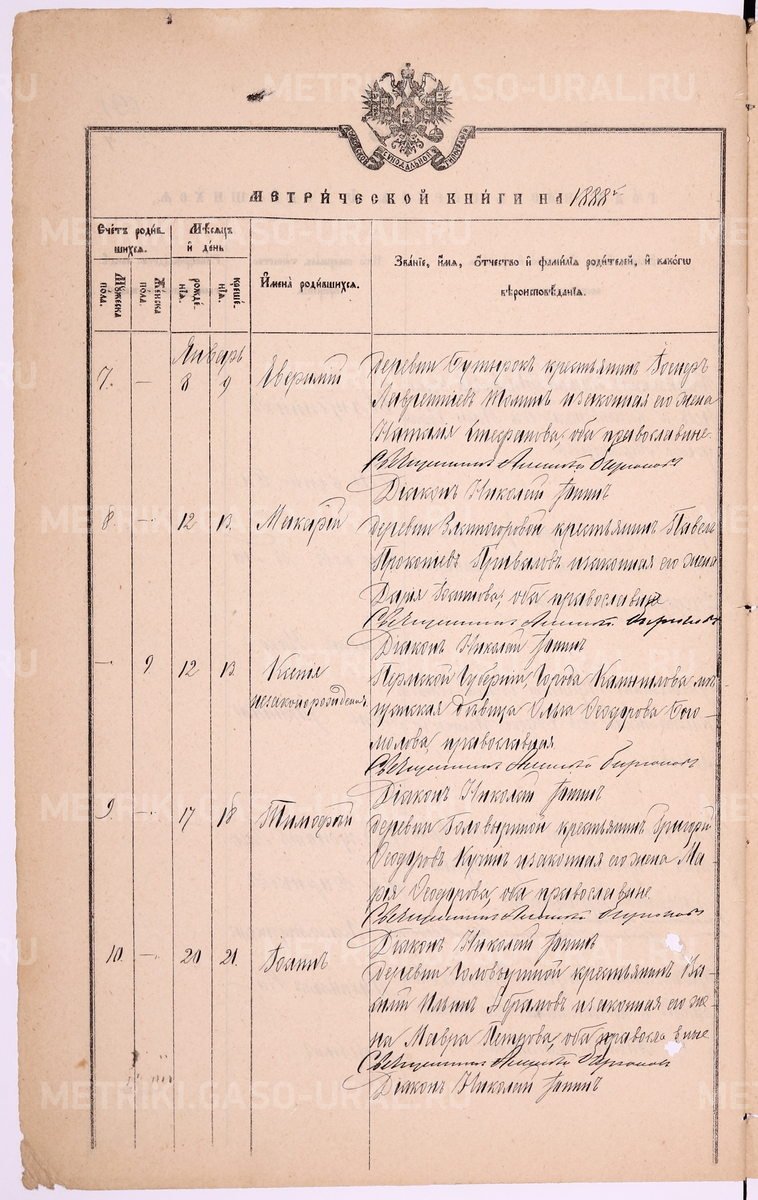 METRIKI.GASO-URAL.RU
МЕТРИ́ЧЕСКОЙ КНИ́ГИ НА 1888 г.
Счетъ роди́в-
шихся.
Мꙋжеска
по́ла.
Же́нска
по́ла.
Мѣ́сяцъ
и҆ де́нь
рожде́-
нїѧ.
креще́-
нїѧ.
И҆мена̀ роди́вшихся.
Зва́нїе, и҆́мѧ, ѻ҆́тчество и҆ фами́лїѧ роди́телей, и҆ како́гѡ
вѣроисповѣ́данїѧ.
Январь
7. — 8 9 Еверимій
деревни Бутырокъ крестьянинъ
Лаврентіевъ Томинъ и законная его жена
Наталія Стефанова, оба православные.
Священникъ
Діаконъ Николай
8 — 12 13. Макарій
деревни крестьянинъ Павелъ
Прокопіевъ Приваловъ и законная его жена
Дарія оба православные
Священникъ
Діаконъ Николай
— 9 12 13. Ксенія
незаконорожденная
Пермской Губерніи, Города Камышлова мѣ-
щанская дѣвица Ольга Ѳеодорова Бого-
молова, православная
Священникъ
Діаконъ Николай
9. — 17 18 Тимофей
деревни Головыриной крестьянинъ Григорій
Ѳеодоровъ и законная его жена Ма-
рія Ѳеодорова, оба православные.
Священникъ
Діаконъ Николай
10. — 20 21. Іоаннъ
деревни Головыриной крестьянинъ Ва-
силій Ильинъ Абрамовъ и законная его же-
на Мавра Петрова, оба православные
Священникъ
Діаконъ Николай